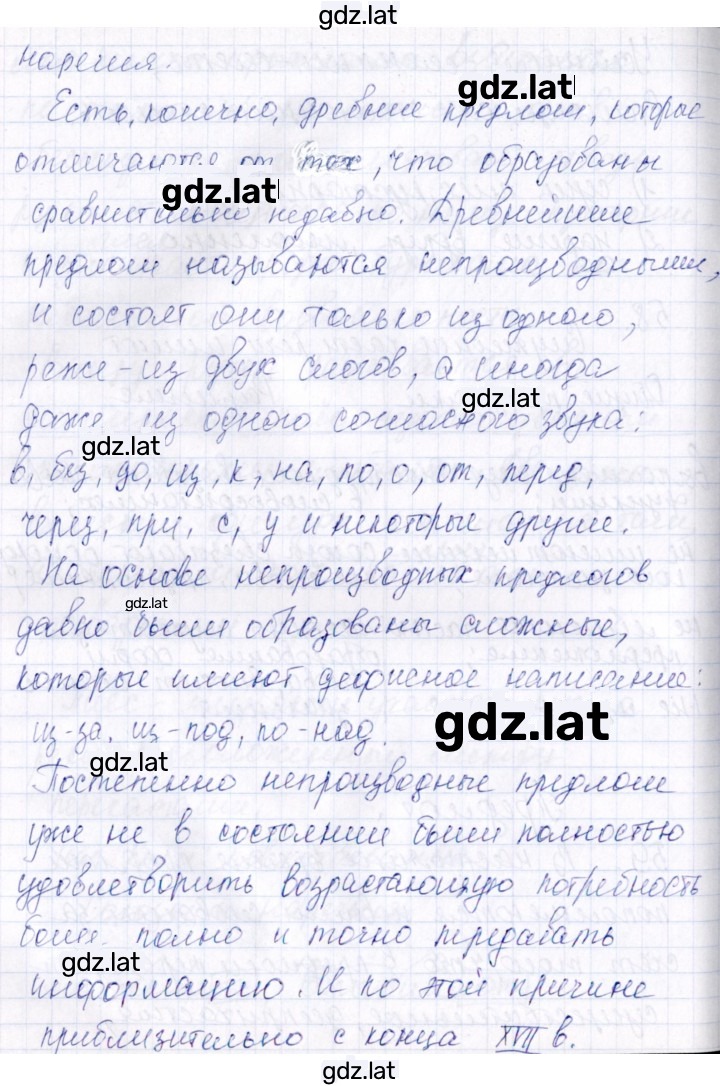 gdz.lat
наречия.
gdz.lat
Есть, конечно, древние предлоги, которые
отличаются от тех, что образованы
gdz.lat
сравнительно недавно. Древнейшие
предлоги называются непроизводными,
и состоят они только из одного,
реже - из двух слогов, а иногда
gdz.lat
даже из одного согласного звука:
gdz.lat
в, без, до, из, к, на, по, о, от, перед,
через, при, с, у и некоторые другие.
На основе непроизводных предлогов
gdz.lat
давно были образованы сложные,
которые имеют дефисное написание:
из-за, из-под, по-над.
gdz.lat
gdz.lat
Постепенно непроизводные предлоги
уже не в состоянии были полностью
удовлетворить возрастающую потребность
более полно и точно передавать
gdz.lat
информацию. И по этой причине
приблизительно с конца XVII в.
gdz.lat